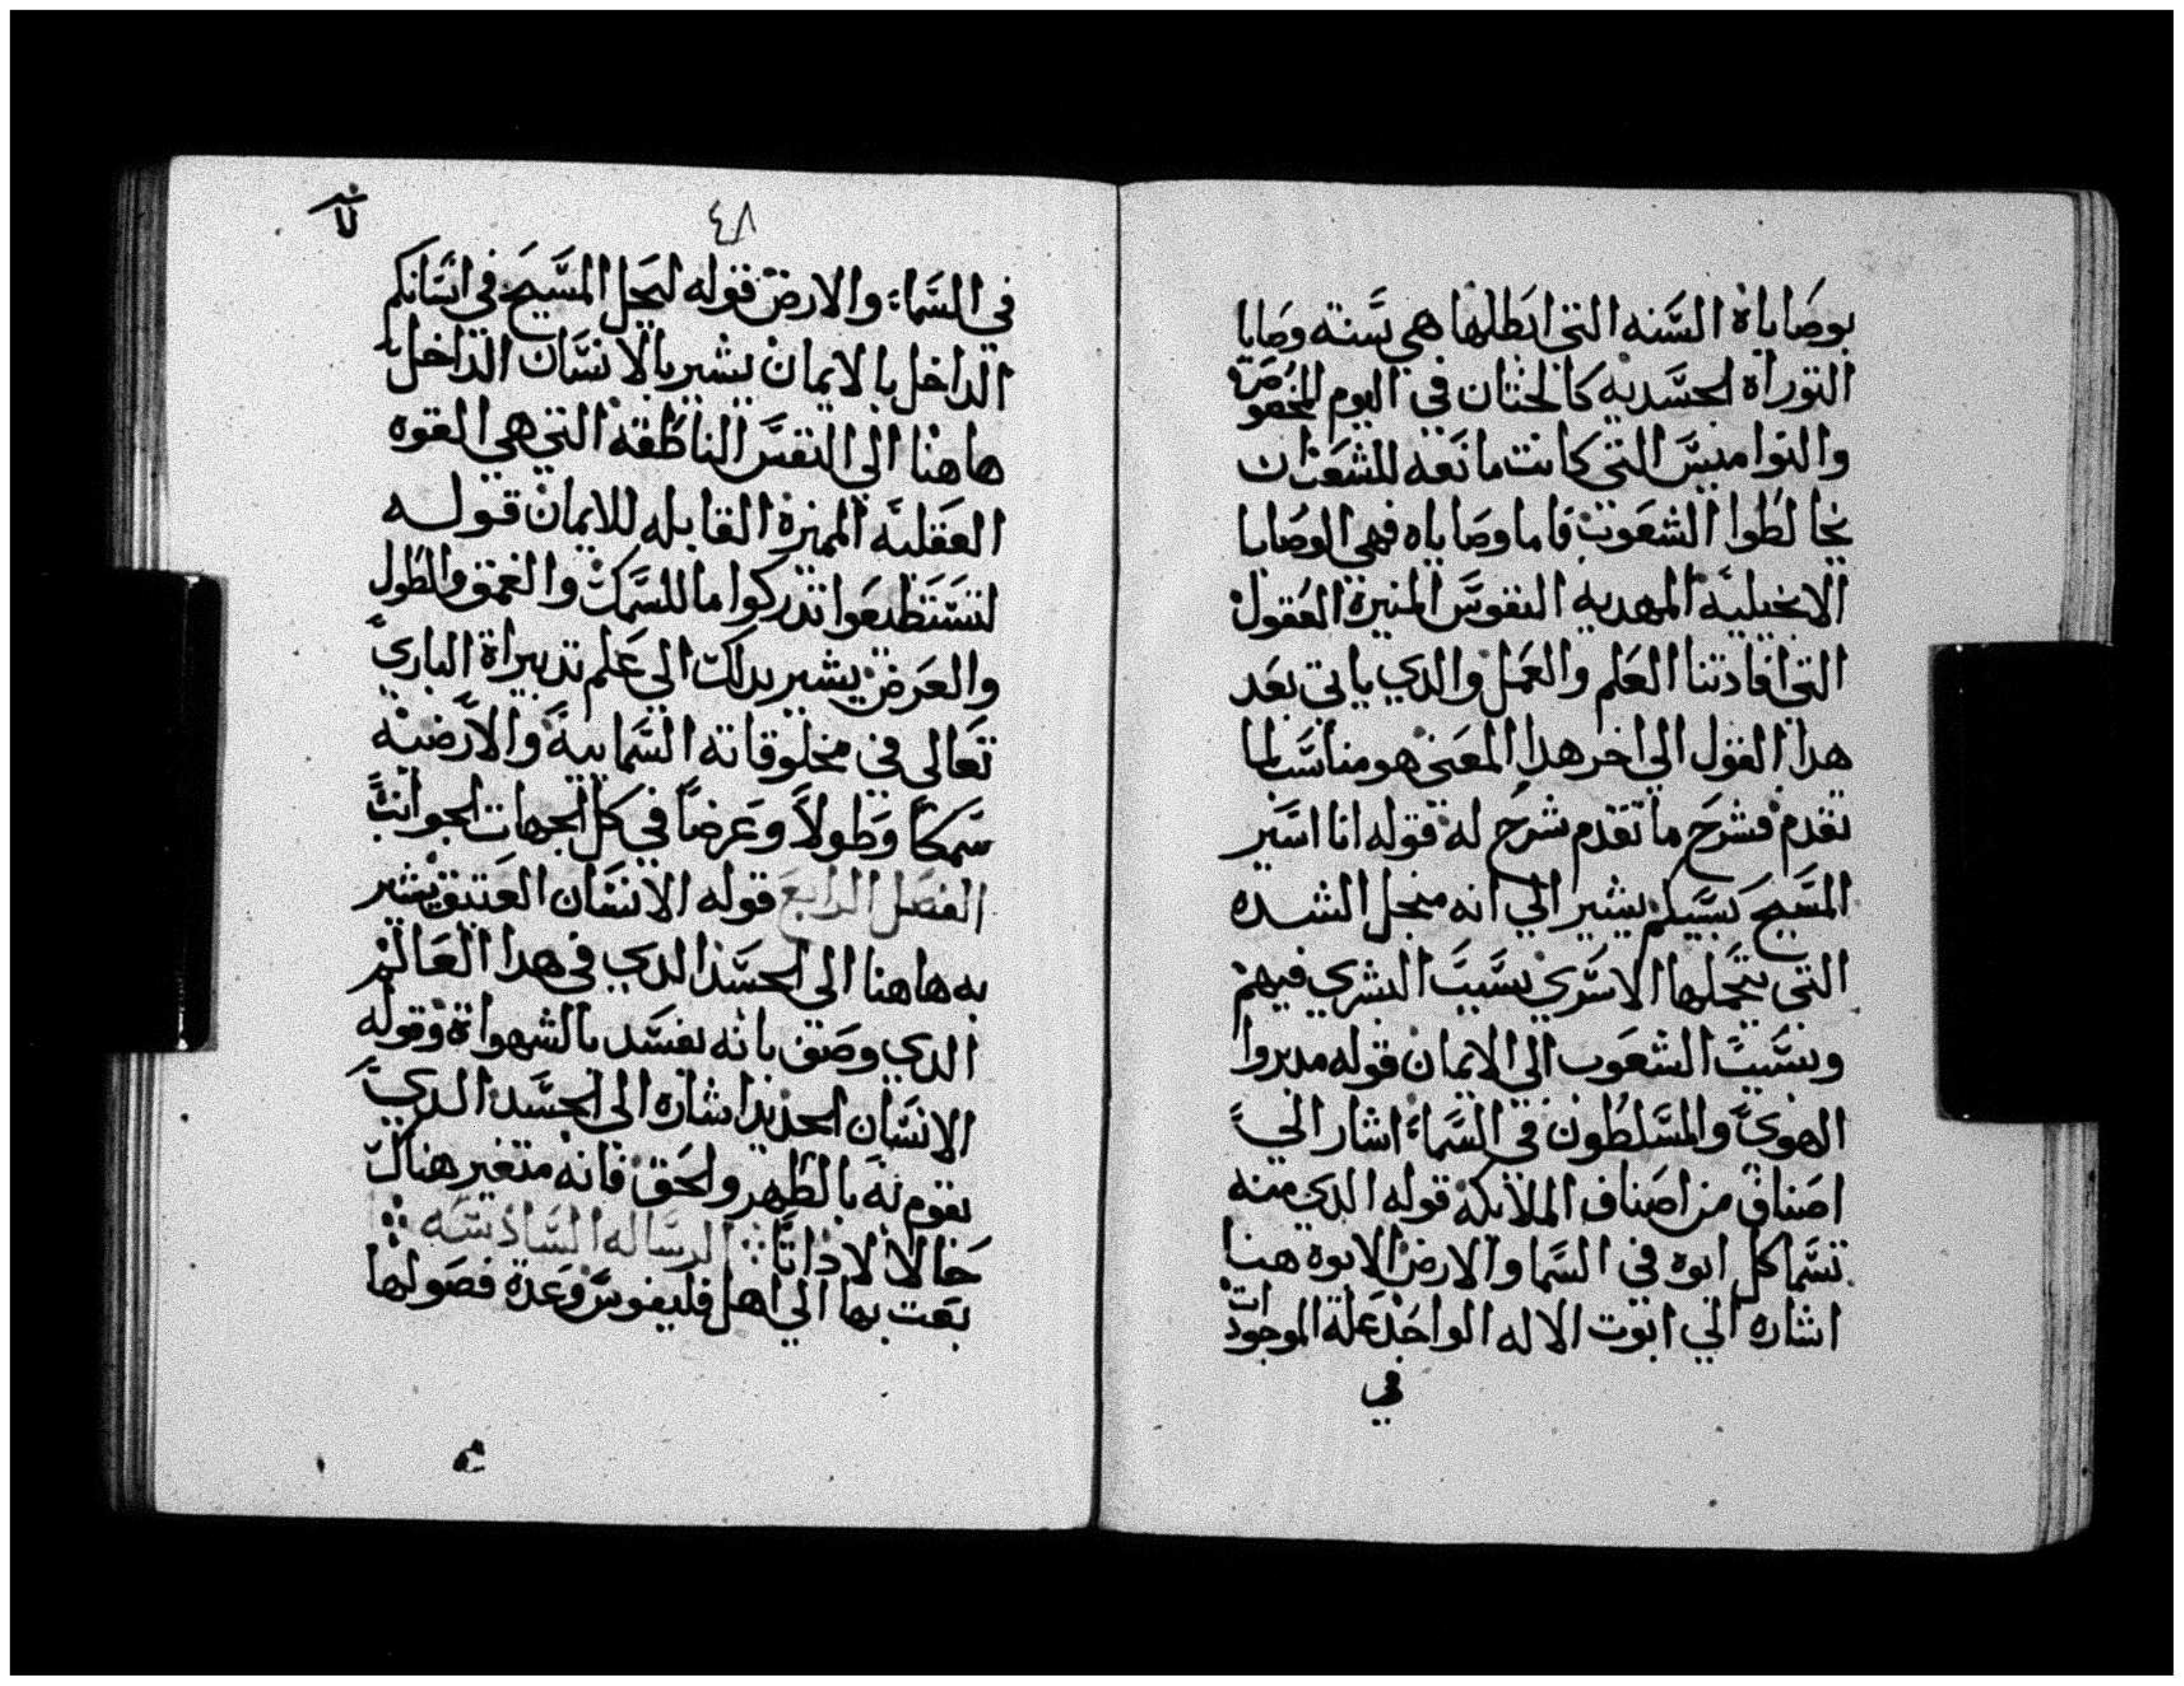 بوصاياة السنه التي ابطلها هي سنته وصايا
التوراه الجسديه كالختان في اليوم المخصوصة
والنواميس التي كانت مانعه للشعب ان
يخالطوا الشعوب فاما وصاياه فهي الوصايا
الانجيلية المهديه النفوس المنيرة العقول
التي افادتنا العلم والعمل والدي ياتى بعد
هدا القول الي اخر هدا المعنى هو مناسب لما
تقدم فشرح ما تقدم شرح له قوله انا اسير
المسيح بسببكم يشير الي انه متحمل الشده
التى يتحملها الاسري بسبب البشري فيهم
وبسبب الشعوب الي الايمان قوله مدبروا
الهوي والمسلطون في السماء اشار الي
اصناف من اصناف الملائكة قوله الدي منه
تسما كل ابوه في السما والارض الابوة هنا
اشاره الي ابوت الاله الواحد علة الموجودات
في
٤٨
في السماء والارض قوله ليحل المسيح في انسانكم
الداخل بالايمان يشير بالانسان الداخل
هاهنا الي النفس الناطقه التي هي القوه
العقليه المميزة القابله للايمان قوله
لتستطيعوا تدركوا ما للسمك والعمق والطول
والعرض يشير بدلك الي علم تدبيراة الباري
تعالى في مخلوقاته السمايية والارضية
سمكاً وطولاً وعرضاً في كل الجهات الجوانب
الفصل الرابع قوله الانسان العتيق يشير
به هاهنا الى الجسد الدي في هدا العالم
الدي وصف بانه يفسد بالشهواة وقوله
الانسان الجديد اشاره الى الجسد الدي
يقوم نه بالطهر والحق فانه متغير هناك
حالا لا داتا الرساله السادسه
بعت بها الي اهل فليفوس وعدة فصولها